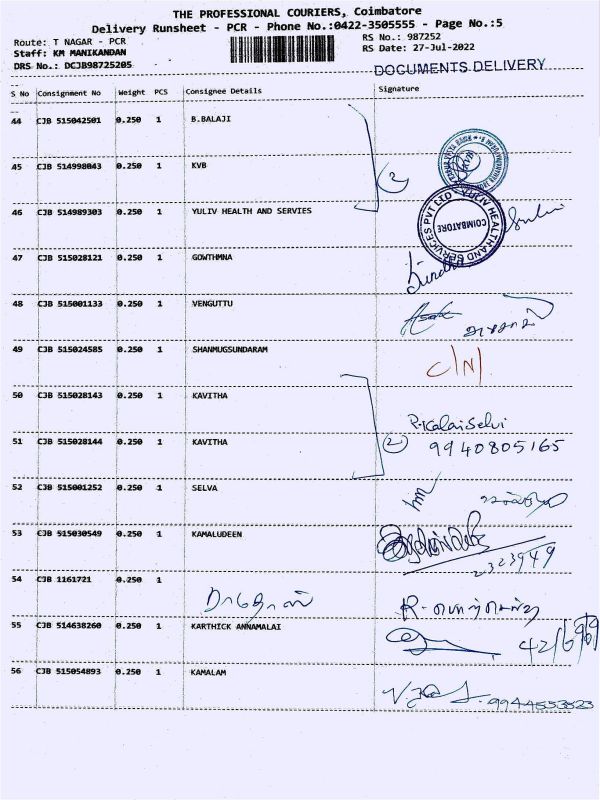 THE PROFESSIONAL COURIERS, Coimbatore
Delivery Runsheet - PCR - Phone No.:0422-3505555 - Page No.:5
Route: T NAGAR - PCR RS No.: 987252
Staff: KM MANIKANDAN RS Date: 27-Jul-2022
DRS No.: DCJB98725205
DOCUMENTS DELIVERY
S No Consignment No Weight PCS Consignee Details Signature
44 CJB 515042501 0.250 1 B.BALAJI
45 CJB 514998043 0.250 1 KVB
2
46 CJB 514989303 0.250 1 YULIV HEALTH AND SERVIES
YULIV HEALTH AND SERVICES PVT LTD
COIMBATORE
47 CJB 515028121 0.250 1 GOWTHMNA
48 CJB 515001133 0.250 1 VENGUTTU
49 CJB 515024585 0.250 1 SHANMUGSUNDARAM
C/N
50 CJB 515028143 0.250 1 KAVITHA
P. Kalai Selvi
51 CJB 515028144 0.250 1 KAVITHA
2 9940805165
52 CJB 515001252 0.250 1 SELVA
53 CJB 515030549 0.250 1 KAMALUDEEN
2323949
54 CJB 1161721 0.250 1
55 CJB 514638260 0.250 1 KARTHICK ANNAMALAI
56 CJB 515054893 0.250 1 KAMALAM